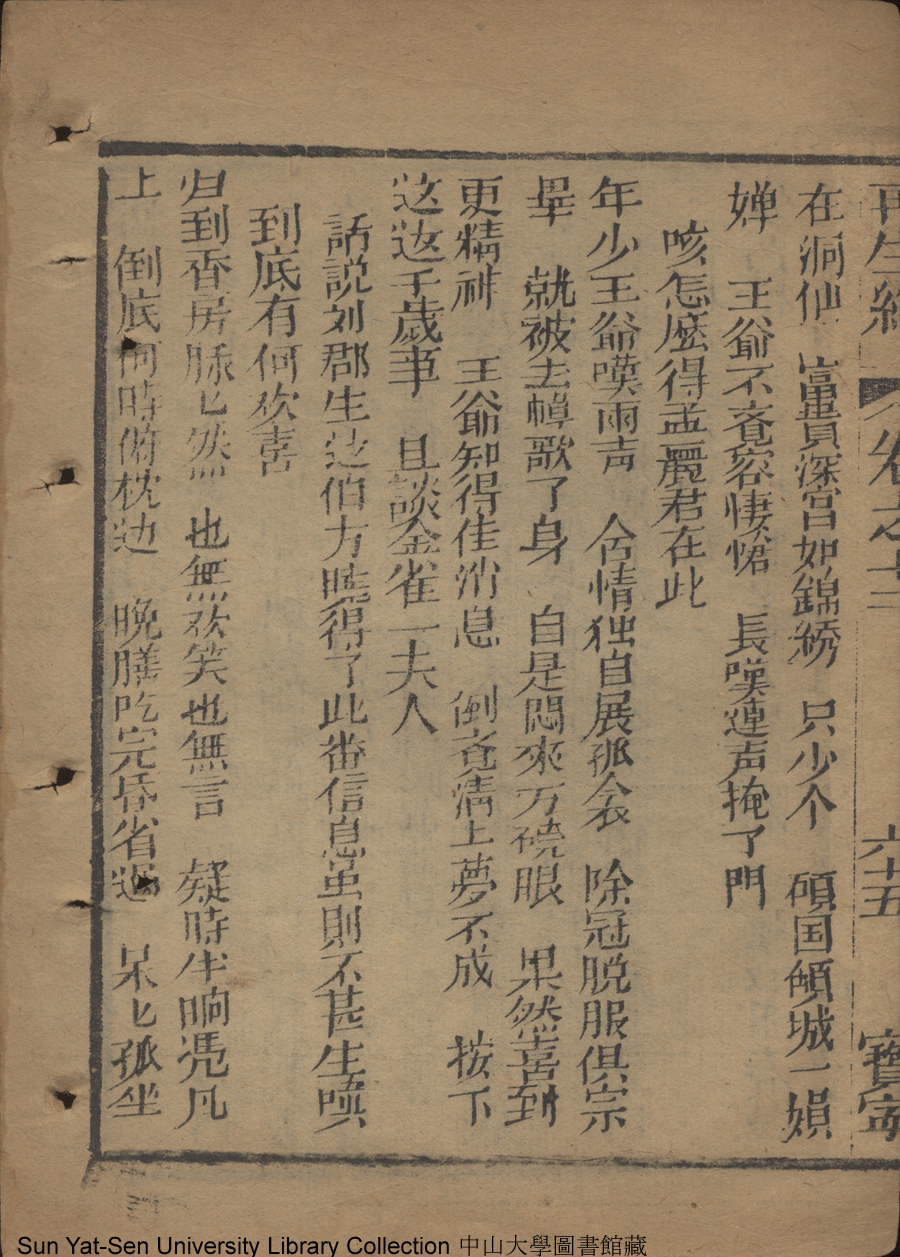 再生緣 卷之十三 六十五 寶寧
在洞仙 富貴深宮如錦綉 只少个 碩国傾城一娟
婵 王爺不覚容悽惨 長嘆連声掩了門
咳怎麽得孟麗君在此
年少王爺嘆兩声 含情独自展孤衾 除冠脱服俱宗
畢 就被去樟歌了身 自是悶來万磽眼 果然喜到
更精神 王爺知得佳消息 倒覚淸上夢不成 按下
这边千歲事 且談金雀一夫人
話説刘郡主遠伯方暁得了此番信息虽則不甚生嗔
到底有何欢喜
归到香房脉匕然 也無欢笑也無言 疑時半晌凭几
上 倒底何時俯枕边 晩膳吃完昏省過 呆匕孤坐
Sun Yat-Sen University Library Collection 中山大學圖書館藏